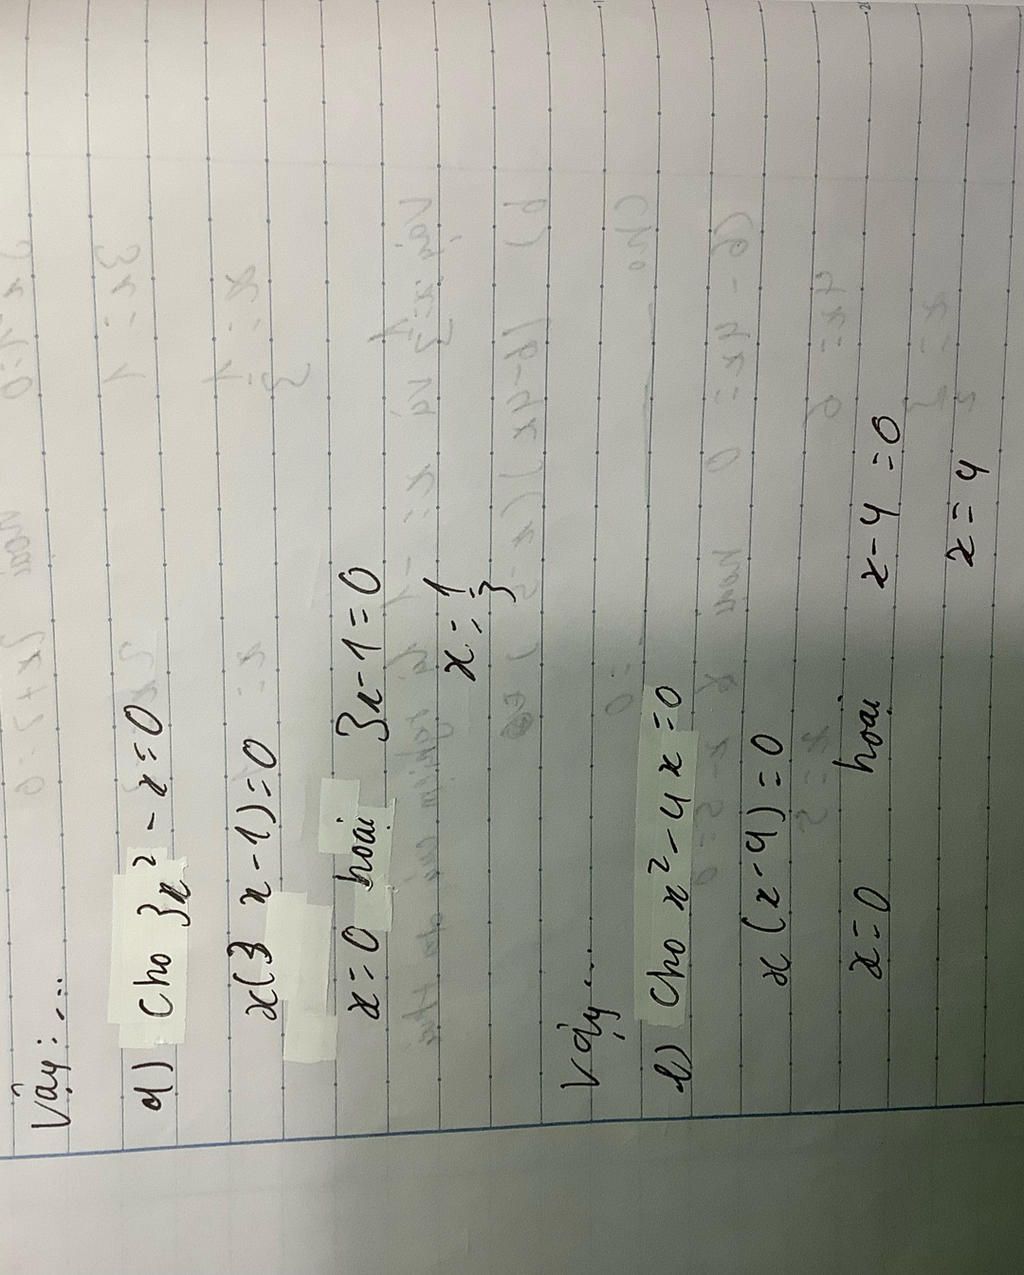 Vậy: ...
d) Cho 3x² - x = 0
x(3x - 1) = 0
x = 0 hoặc 3x - 1 = 0
x = 1/3
Vậy ...
e) Cho x² - 4x = 0
x(x - 4) = 0
x = 0 hoặc x - 4 = 0
x = 4